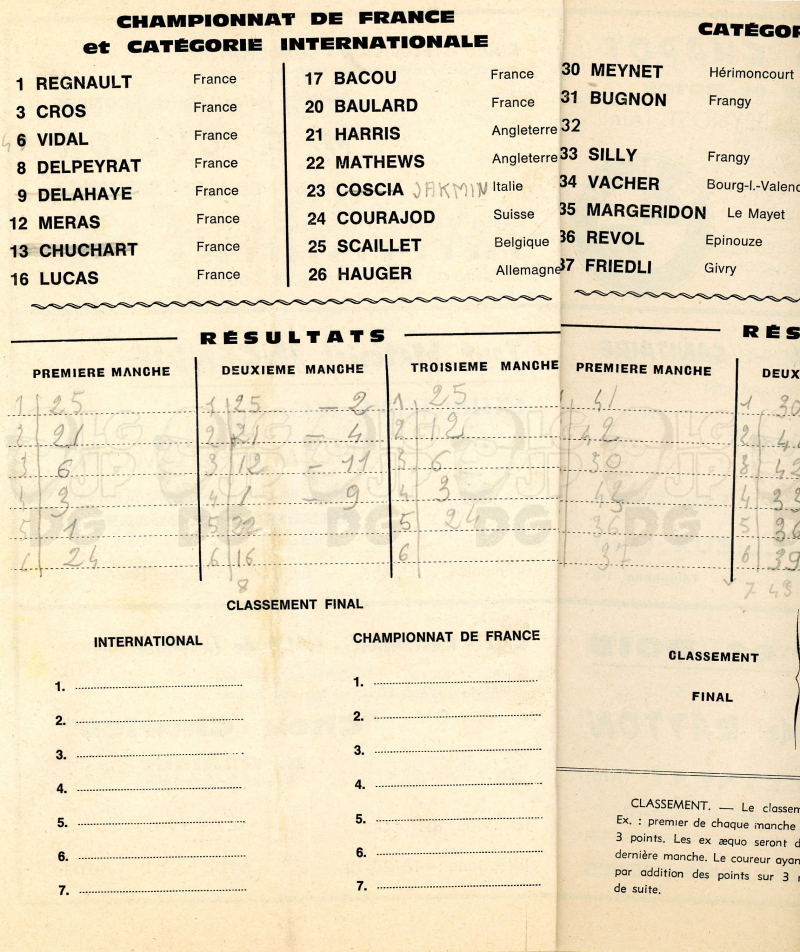 CHAMPIONNAT DE FRANCE
et CATÉGORIE INTERNATIONALE
1 REGNAULT France
3 CROS France
6 VIDAL France
8 DELPEYRAT France
9 DELAHAYE France
12 MERAS France
13 CHUCHART France
16 LUCAS France
17 BACOU France
20 BAULARD France
21 HARRIS Angleterre
22 MATHEWS Angleterre
23 COSCIA JAKMIN Italie
24 COURAJOD Suisse
25 SCAILLET Belgique
26 HAUGER Allemagne
RÉSULTATS
PREMIERE MANCHE
1 25
2 21
3 6
4 3
5 1
6 24
DEUXIEME MANCHE
1 25 - 2
2 21 - 4
3 12 - 11
4 1 - 9
5 22
6 16
8
TROISIEME MANCHE
1 25
2 12
3 6
4 3
5 24
6
CLASSEMENT FINAL
INTERNATIONAL
1.
2.
3.
4.
5.
6.
7.
CHAMPIONNAT DE FRANCE
1.
2.
3.
4.
5.
6.
7.
CATÉGOR
30 MEYNET Hérimoncourt
31 BUGNON Frangy
32
33 SILLY Frangy
34 VACHER Bourg-l.-Valenc
35 MARGERIDON Le Mayet
36 REVOL Epinouze
37 FRIEDLI Givry
RÉS
PREMIERE MANCHE
41
42
30
36
37
DEUX
1 30
2
3 42
4 33
5 36
6 39
7 43
CLASSEMENT
FINAL
CLASSEMENT. — Le classem
Ex. : premier de chaque manche
3 points. Les ex æquo seront d
dernière manche. Le coureur ayan
par addition des points sur 3
de suite.